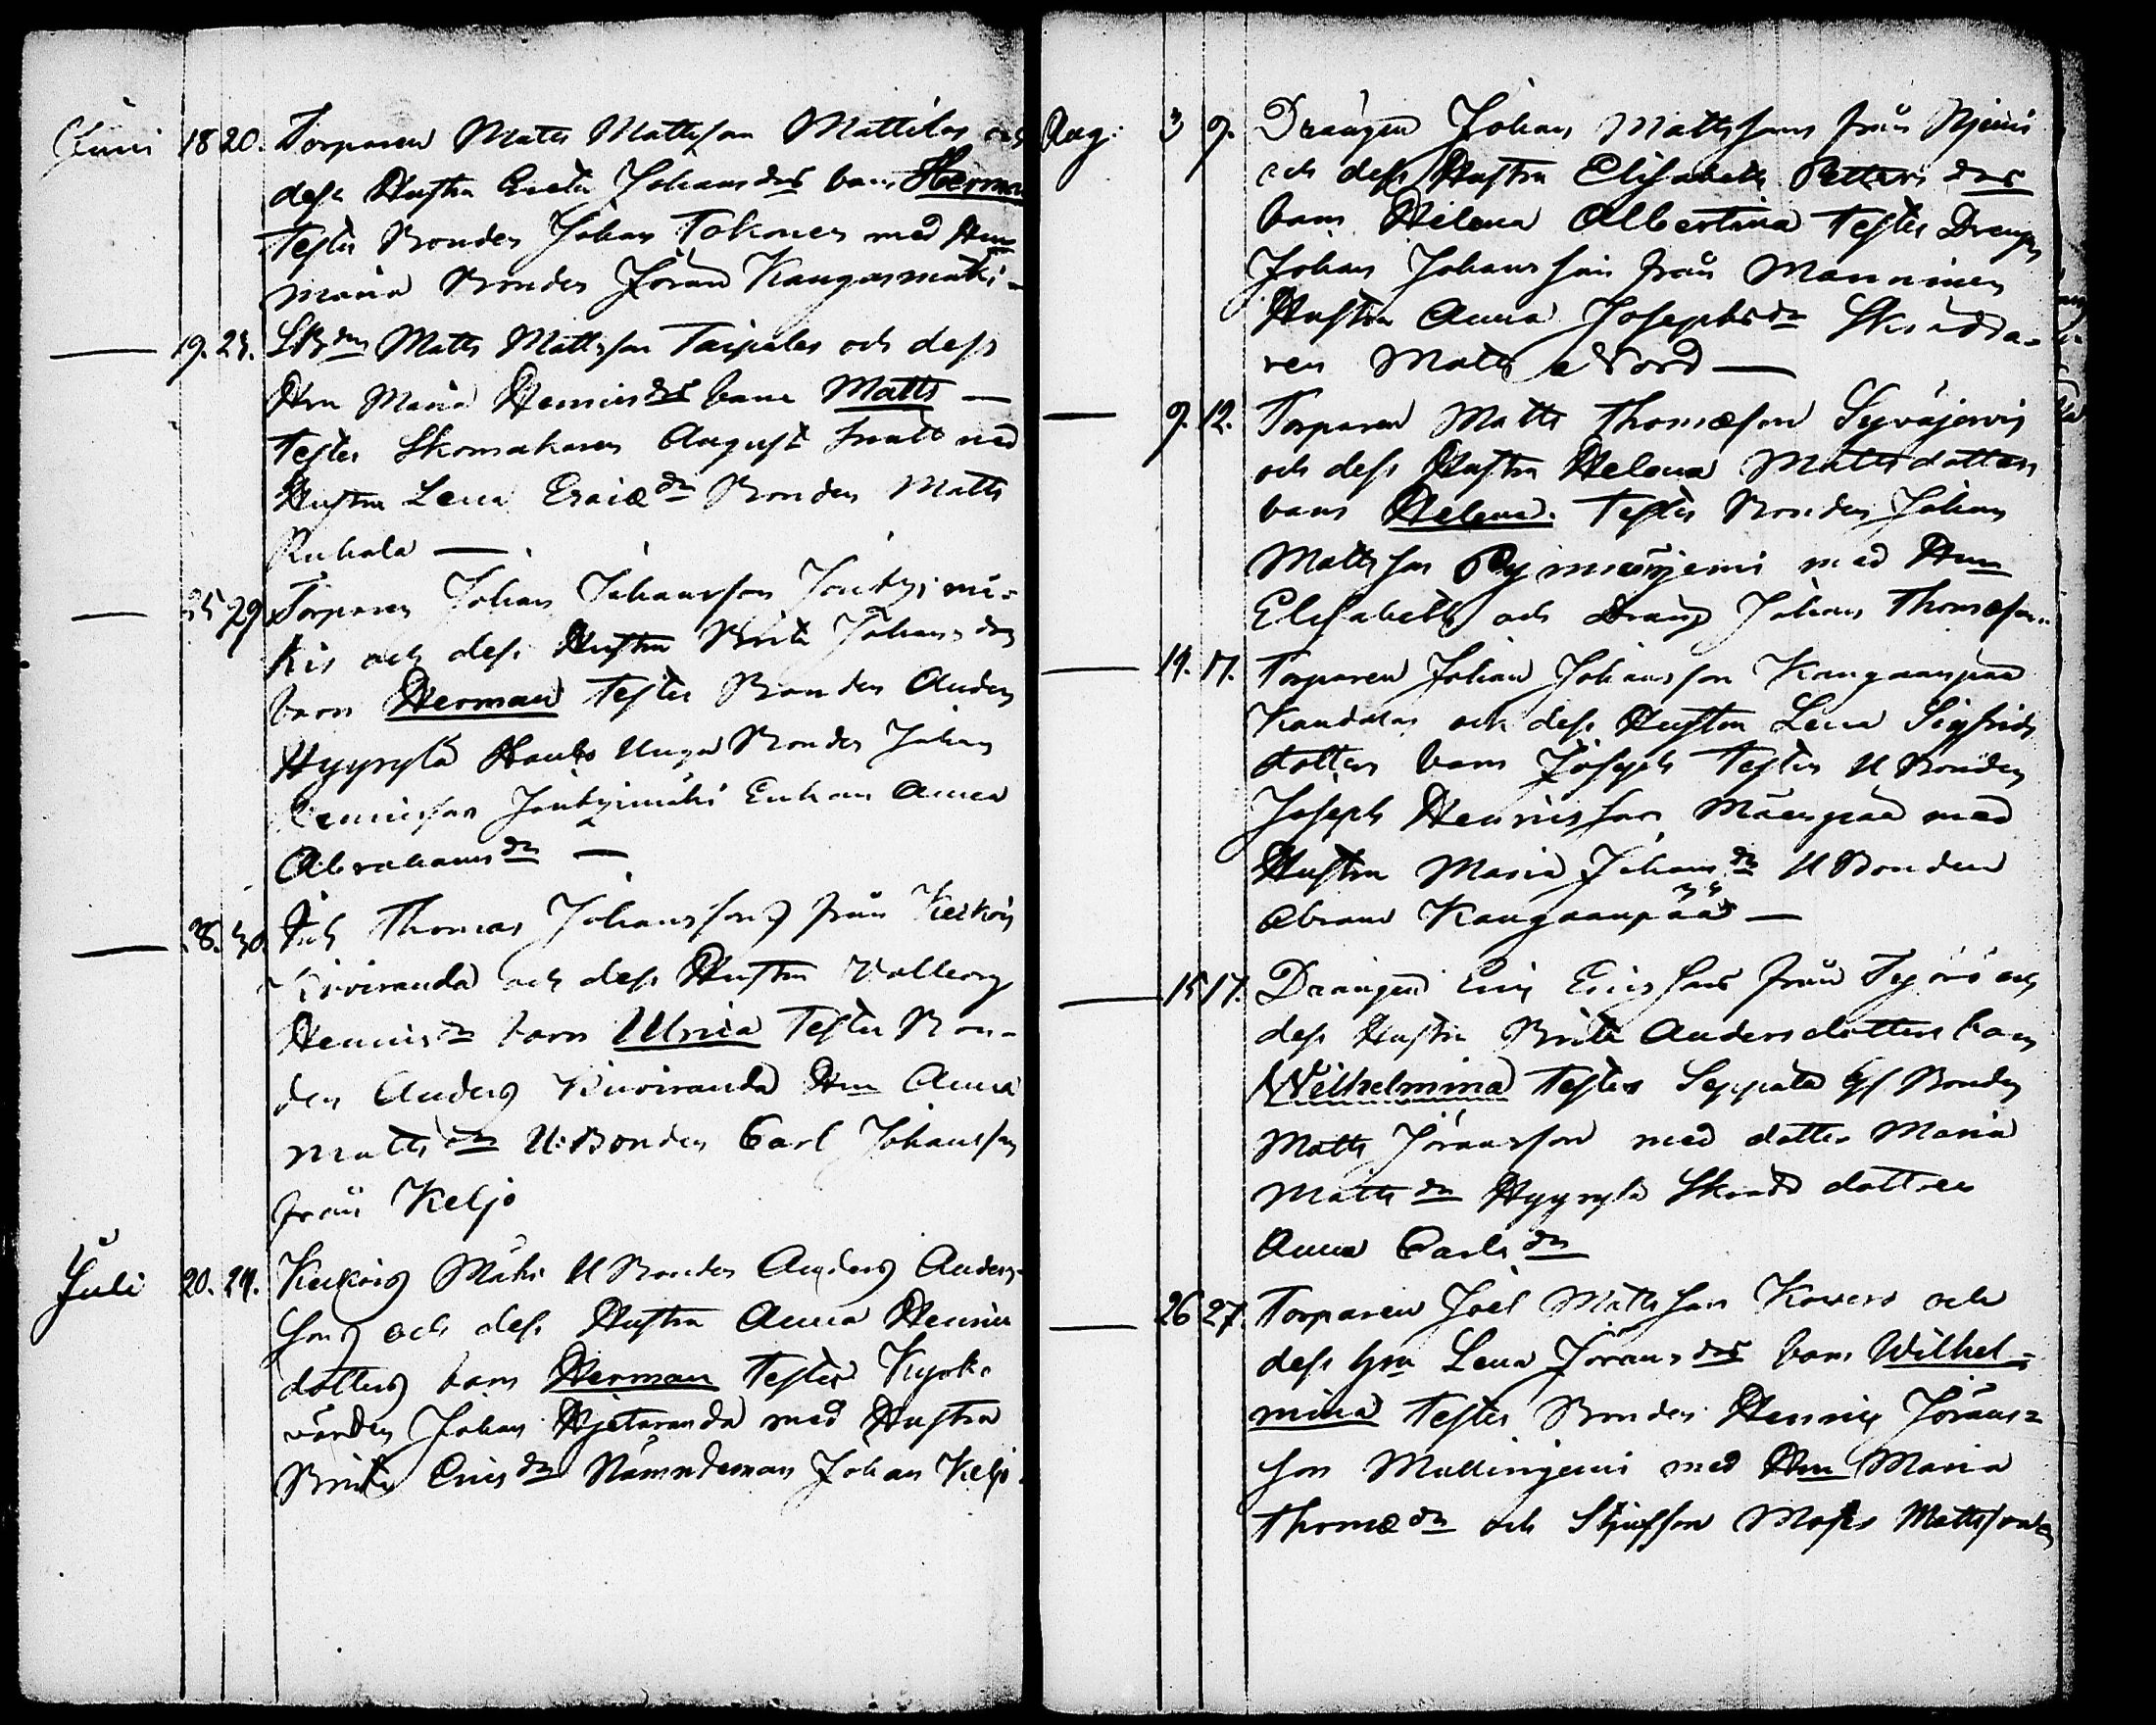 Juni 18 20. Torparen Matts Mattsson Mattilas och
dess Hustru Greta Johansdr barn Herman
Testes Bonden Johan Tokonen med Hu
maria Bonden Jöran Kangasmäki -
— 19. 23. Matts Mattsson Taipales och dess
Hru Maria Henricsdr barn Matts —
Testes Skomakaren August med
Hustru Lena Esaiædr Bonden Matts
Ruhala —
— 25 29 Torparen Johan Johansson Jouttimä-
kis och dess Hustru Brita Johansdr
barn Herman Testes Bonden Anders
Hyyryla Unga Bonden Johan
Henricsson Enkan Anna
Abrahamsdr —
— 28. 30. Inh Thomas Johansson från Keikois
Kiviranda och dess Hustru Valborg
Henricsdr barn Ulrica Testes Bon-
den Anders Kiviranda Hru Anna
Mattsdr U:Bonden Carl Johansson
från Keljo
Juli 20. 24. Keikois Mäki U Bonden Anders Anders-
son och dess Hustru Anna Henrics
dotters barn Herman Testes Kyrko-
värden Johan Hjetaranda med Hustru
Brita Ericsdr Nämndeman Johan Keljo.
Aug: 3 9. Drängen Johan Mattssons från Njemis
och dess Hustru Elisabeth Pettersdr
barn Helena Albertina Testes Drengen
Johan Johansson från Manninen
Hustru Anna Josephsdr Skrädda-
ren Matts Nord —
— 9. 12. Torparen Matts Thomasson Syväjervis
och dess Hustru Helena Mattsdotters
barn Helena. Testes Bonden Johan
Mattsson med Hru
Elisabeth och Dräng Johan Thomasson
— 14. 17. Torparen Johan Johansson Kangaanpää
och dess Hustru Lena Sigfrids
dotters barn Joseph Testes U Bonden
Joseph Henricsson Mäenpää med
Hustru Maria Johansdr U Bonden
Abram Kangaanpää —
— 15 17. Drängen Eric Ericsson från och
dess Hustru Brita Andersdotters barn
Wilhelmina Testes Seppälä Bonden
Matts Jöransson med dotter Maria
Mattsdr Hyyryla dottren
Anna Carlsdr
— 26 27. Torparen Joel Mattsson Koivero och
dess hru Lena Joransdr barn Wilhel-
mina Testes Bonden Henric Jörans-
son Mattinjemi med Hru Maria
Thomædr och Moses Mattsson